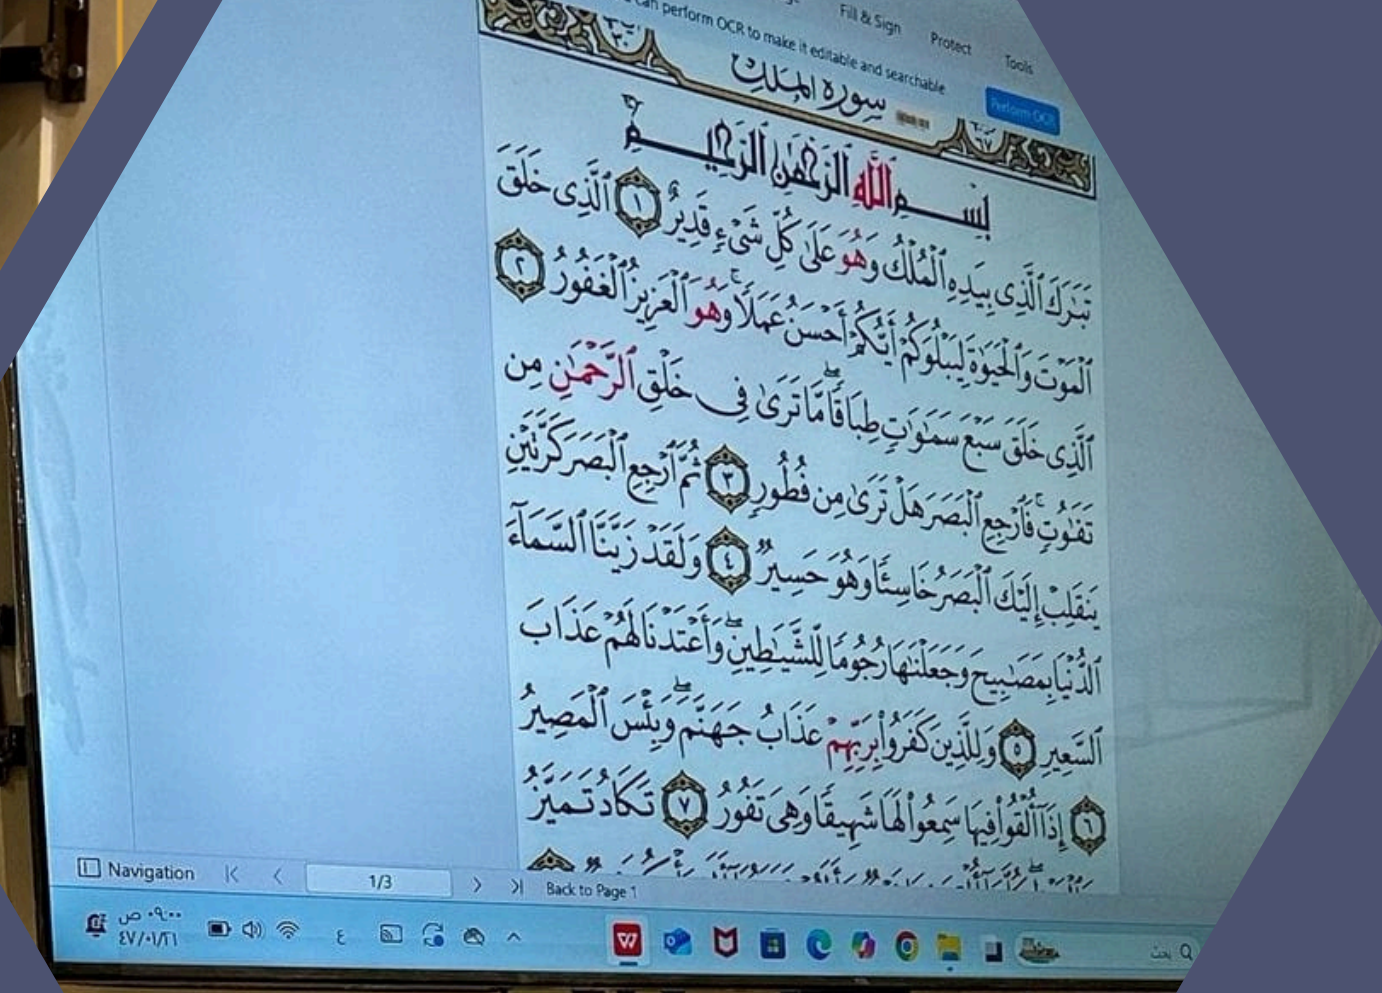 Fill & Sign
Protect
Tools
can perform OCR to make it editable and searchable
Perform OCR
سورة الملك
بِسْمِ ٱللَّهِ ٱلرَّحْمَٰنِ ٱلرَّحِيمِ
تَبَٰرَكَ ٱلَّذِى بِيَدِهِ ٱلْمُلْكُ وَهُوَ عَلَىٰ كُلِّ شَىْءٍ قَدِيرٌ ١ ٱلَّذِى خَلَقَ
ٱلْمَوْتَ وَٱلْحَيَوٰةَ لِيَبْلُوَكُمْ أَيُّكُمْ أَحْسَنُ عَمَلًا ۚ وَهُوَ ٱلْعَزِيزُ ٱلْغَفُورُ ٢
ٱلَّذِى خَلَقَ سَبْعَ سَمَٰوَٰتٍ طِبَاقًا ۖ مَّا تَرَىٰ فِى خَلْقِ ٱلرَّحْمَٰنِ مِن
تَفَٰوُتٍ ۖ فَٱرْجِعِ ٱلْبَصَرَ هَلْ تَرَىٰ مِن فُطُورٍ ٣ ثُمَّ ٱرْجِعِ ٱلْبَصَرَ كَرَّتَيْنِ
يَنقَلِبْ إِلَيْكَ ٱلْبَصَرُ خَاسِئًا وَهُوَ حَسِيرٌ ٤ وَلَقَدْ زَيَّنَّا ٱلسَّمَآءَ
ٱلدُّنْيَا بِمَصَٰبِيحَ وَجَعَلْنَٰهَا رُجُومًا لِّلشَّيَٰطِينِ ۖ وَأَعْتَدْنَا لَهُمْ عَذَابَ
ٱلسَّعِيرِ ٥ وَلِلَّذِينَ كَفَرُوا۟ بِرَبِّهِمْ عَذَابُ جَهَنَّمَ ۖ وَبِئْسَ ٱلْمَصِيرُ
٦ إِذَآ أُلْقُوا۟ فِيهَا سَمِعُوا۟ لَهَا شَهِيقًا وَهِىَ تَفُورُ ٧ تَكَادُ تَمَيَّزُ
Navigation
1/3
Back to Page 1
٠٩:٠٠ ص
٤٧/٠١/٢١
ع
بحث